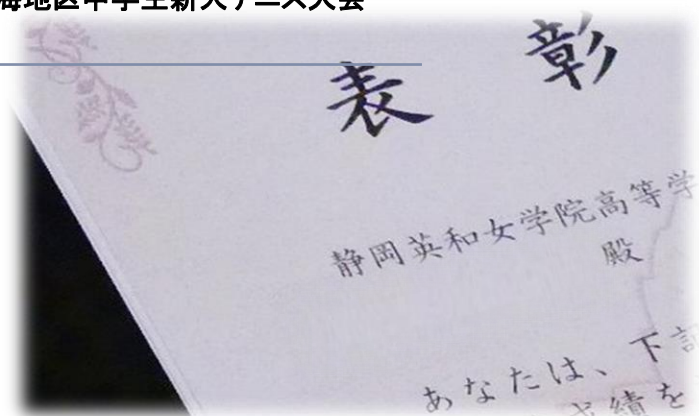 海地区中学生新人テニス大会
表彰
静岡英和女学院高等学
殿
あなたは、下記
成績を